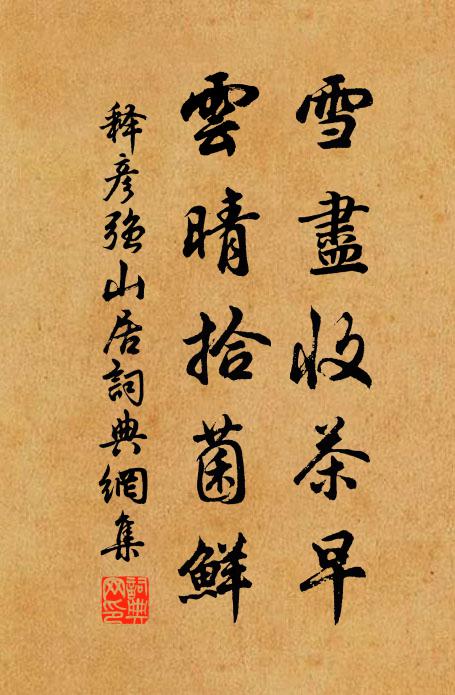 雪盡收茶早
雲晴拾菌鮮
释彦强山居詞典網集
詞典網印